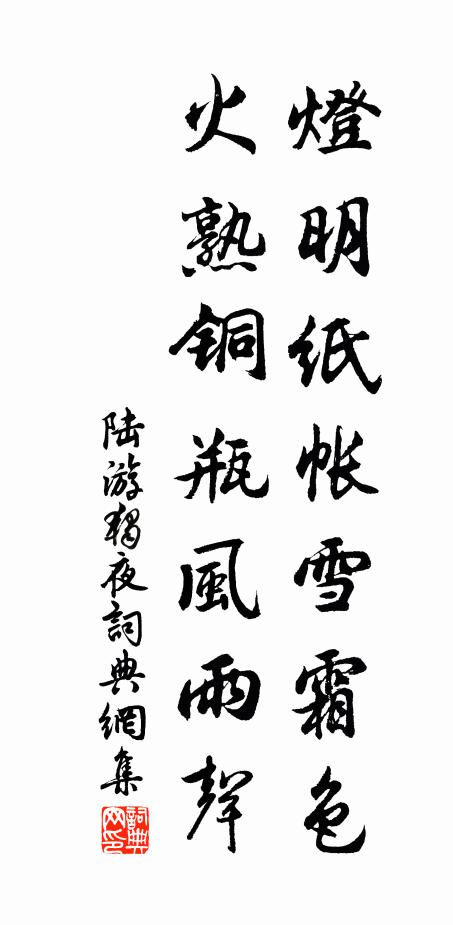 燈明纸帐雪霜色
火熟銅瓶風雨聲
陆游獨夜詞典網集
詞典网印